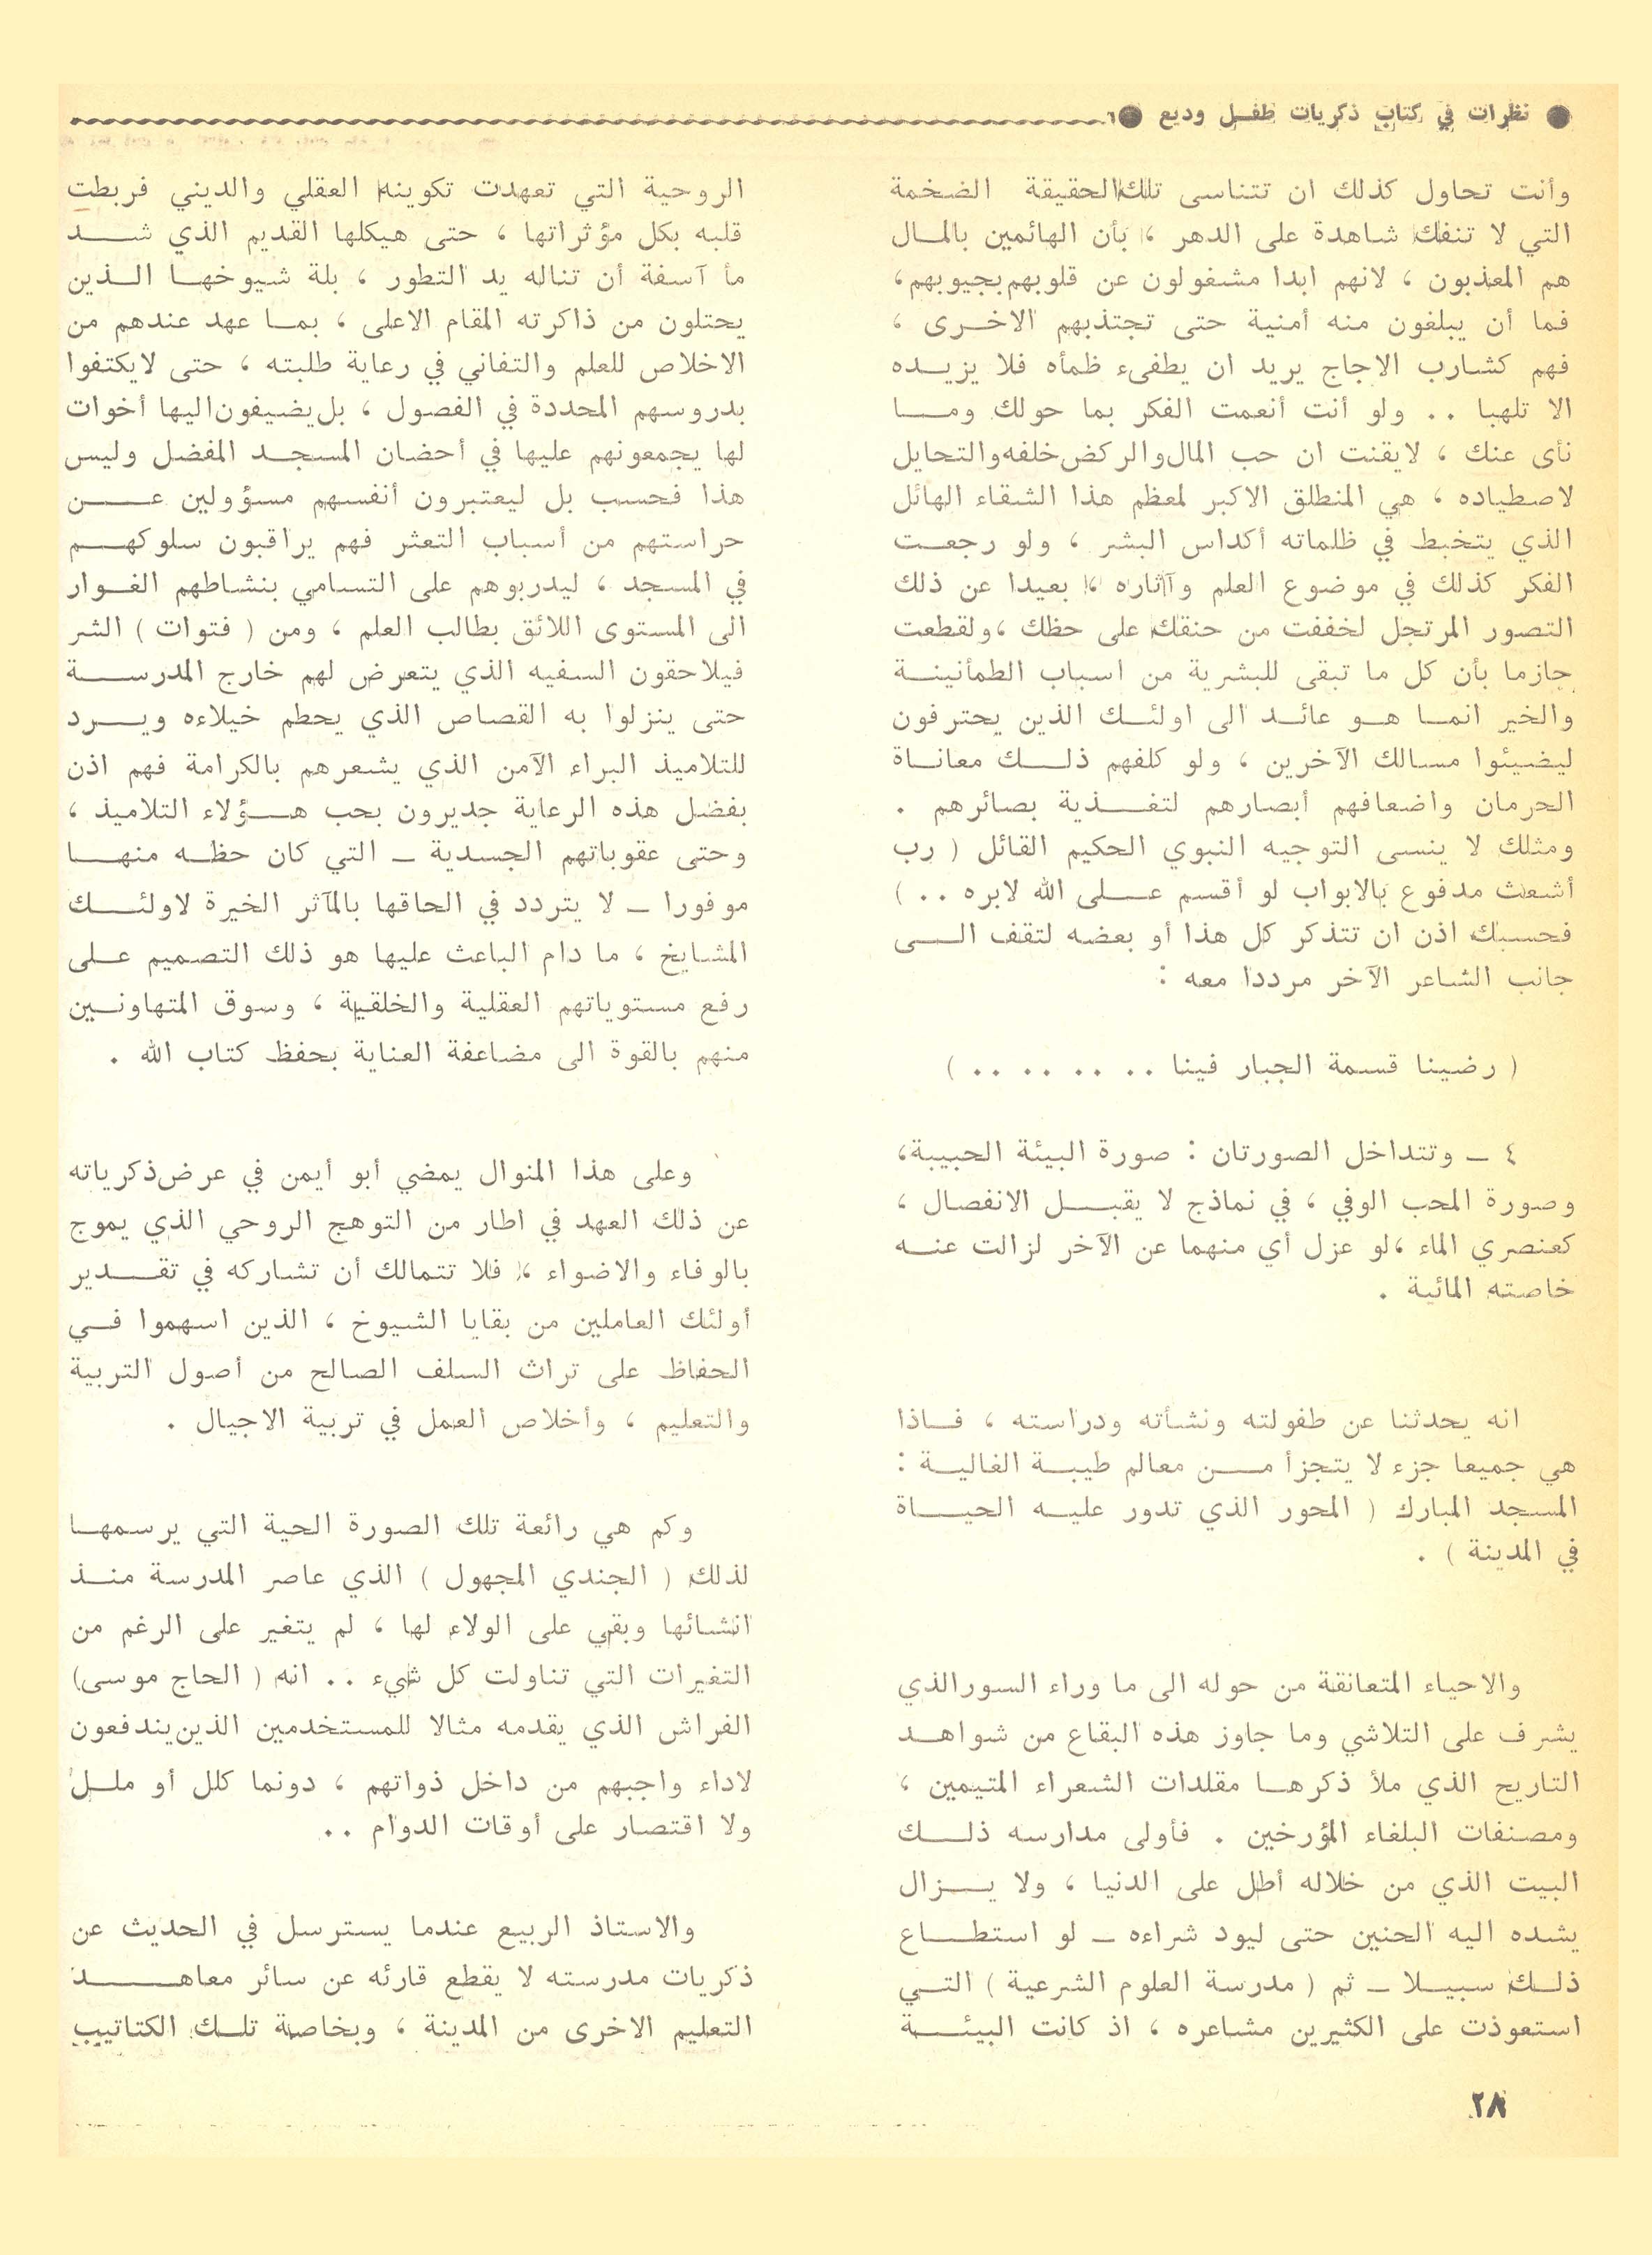 ● نظرات في كتاب ذكريات طفل وديع ●
وأنت تحاول كذلك ان تتناسى تلك الحقيقة الضخمة
التي لا تنفك شاهدة على الدهر ، بأن الهائمين بالمال
هم المعذبون ، لانهم ابدا مشغولون عن قلوبهم بجيوبهم،
فما أن يبلغون منه أمنية حتى تجتذبهم الاخرى ،
فهم كشارب الاجاج يريد ان يطفىء ظمأه فلا يزيده
الا تلهبا .. ولو أنت أنعمت الفكر بما حولك وما
نأى عنك ، لايقنت ان حب المال والركض خلفه والتحايل
لاصطياده ، هي المنطلق الاكبر لمعظم هذا الشقاء الهائل
الذي يتخبط في ظلماته أكداس البشر ، ولو رجعت
الفكر كذلك في موضوع العلم وآثاره ، بعيدا عن ذلك
التصور المرتجل لخففت من حنقك على حظك ،ولقطعت
جازما بأن كل ما تبقى للبشرية من اسباب الطمأنينة
والخير انما هو عائد الى اولئك الذين يحترفون
ليضيئوا مسالك الآخرين ، ولو كلفهم ذلك معاناة
الحرمان واضعافهم أبصارهم لتغذية بصائرهم .
ومثلك لا ينسى التوجيه النبوي الحكيم القائل ( رب
أشعث مدفوع بالابواب لو أقسم على الله لابره .. )
فحسبك اذن ان تتذكر كل هذا أو بعضه لتقف الى
جانب الشاعر الآخر مرددا معه :
( رضينا قسمة الجبار فينا .. .. .. .. )
٤ ـ وتتداخل الصورتان : صورة البيئة الحبيبة،
وصورة المحب الوفي ، في نماذج لا يقبل الانفصال ،
كعنصري الماء ،لو عزل أي منهما عن الآخر لزالت عنه
خاصته المائية .
انه يحدثنا عن طفولته ونشأته ودراسته ، فاذا
هي جميعا جزء لا يتجزأ من معالم طيبة الغالية :
المسجد المبارك ( المحور الذي تدور عليه الحياة
في المدينة ) .
والاحياء المتعانقة من حوله الى ما وراء السور الذي
يشرف على التلاشي وما جاوز هذه البقاع من شواهد
التاريح الذي ملأ ذكرها مقلدات الشعراء المتيمين ،
ومصنفات البلغاء المؤرخين . فأولى مدارسه ذلك
البيت الذي من خلاله أطل على الدنيا ، ولا يزال
يشده اليه الحنين حتى ليود شراءه ـ لو استطاع
ذلك سبيلا ـ ثم ( مدرسة العلوم الشرعية ) التي
استعوذت على الكثيرين مشاعره ، اذ كانت البيئة
الروحية التي تعهدت تكوينه العقلي والديني فربطت
قلبه بكل مؤثراتها ، حتى هيكلها القديم الذي شد
مأ آسفة أن تناله يد التطور ، بلة شيوخها الذين
يحتلون من ذاكرته المقام الاعلى ، بما عهد عندهم من
الاخلاص للعلم والتفاني في رعاية طلبته ، حتى لايكتفوا
بدروسهم المحددة في الفصول ، بل يضيفون اليها أخوات
لها يجمعونهم عليها في أحضان المسجد المفضل وليس
هذا فحسب بل ليعتبرون أنفسهم مسؤولين عن
حراستهم من أسباب التعثر فهم يراقبون سلوكهم
في المسجد ، ليدربوهم على التسامي بنشاطهم الغوار
الى المستوى اللائق بطالب العلم ، ومن ( فتوات ) الشر
فيلاحقون السفيه الذي يتعرض لهم خارج المدرسة
حتى ينزلوا به القصاص الذي يحطم خيلاءه ويرد
للتلاميذ البراء الآمن الذي يشعرهم بالكرامة فهم اذن
بفضل هذه الرعاية جديرون بحب هؤلاء التلاميذ ،
وحتى عقوباتهم الجسدية ـ التي كان حظه منها
موفورا ـ لا يتردد في الحاقها بالمآثر الخيرة لاولئك
المشايخ ، ما دام الباعث عليها هو ذلك التصميم على
رفع مستوياتهم العقلية والخلقية ، وسوق المتهاونين
منهم بالقوة الى مضاعفة العناية بحفظ كتاب الله .
وعلى هذا المنوال يمضي أبو أيمن في عرض ذكرياته
عن ذلك العهد في اطار من التوهج الروحي الذي يموج
بالوفاء والاضواء ، فلا تتمالك أن تشاركه في تقدير
أولئك العاملين من بقايا الشيوخ ، الذين اسهموا في
الحفاظ على تراث السلف الصالح من أصول التربية
والتعليم ، وأخلاص العمل في تربية الاجيال .
وكم هي رائعة تلك الصورة الحية التي يرسمها
لذلك ( الجندي المجهول ) الذي عاصر المدرسة منذ
انشائها وبقي على الولاء لها ، لم يتغير على الرغم من
التغيرات التي تناولت كل شيء .. انه ( الحاج موسى)
الفراش الذي يقدمه مثالا للمستخدمين الذين يندفعون
لاداء واجبهم من داخل ذواتهم ، دونما كلل أو ملل
ولا اقتصار على أوقات الدوام ..
والاستاذ الربيع عندما يسترسل في الحديث عن
ذكريات مدرسته لا يقطع قارئه عن سائر معاهد
التعليم الاخرى من المدينة ، وبخاصة تلك الكتاتيب
٢٨